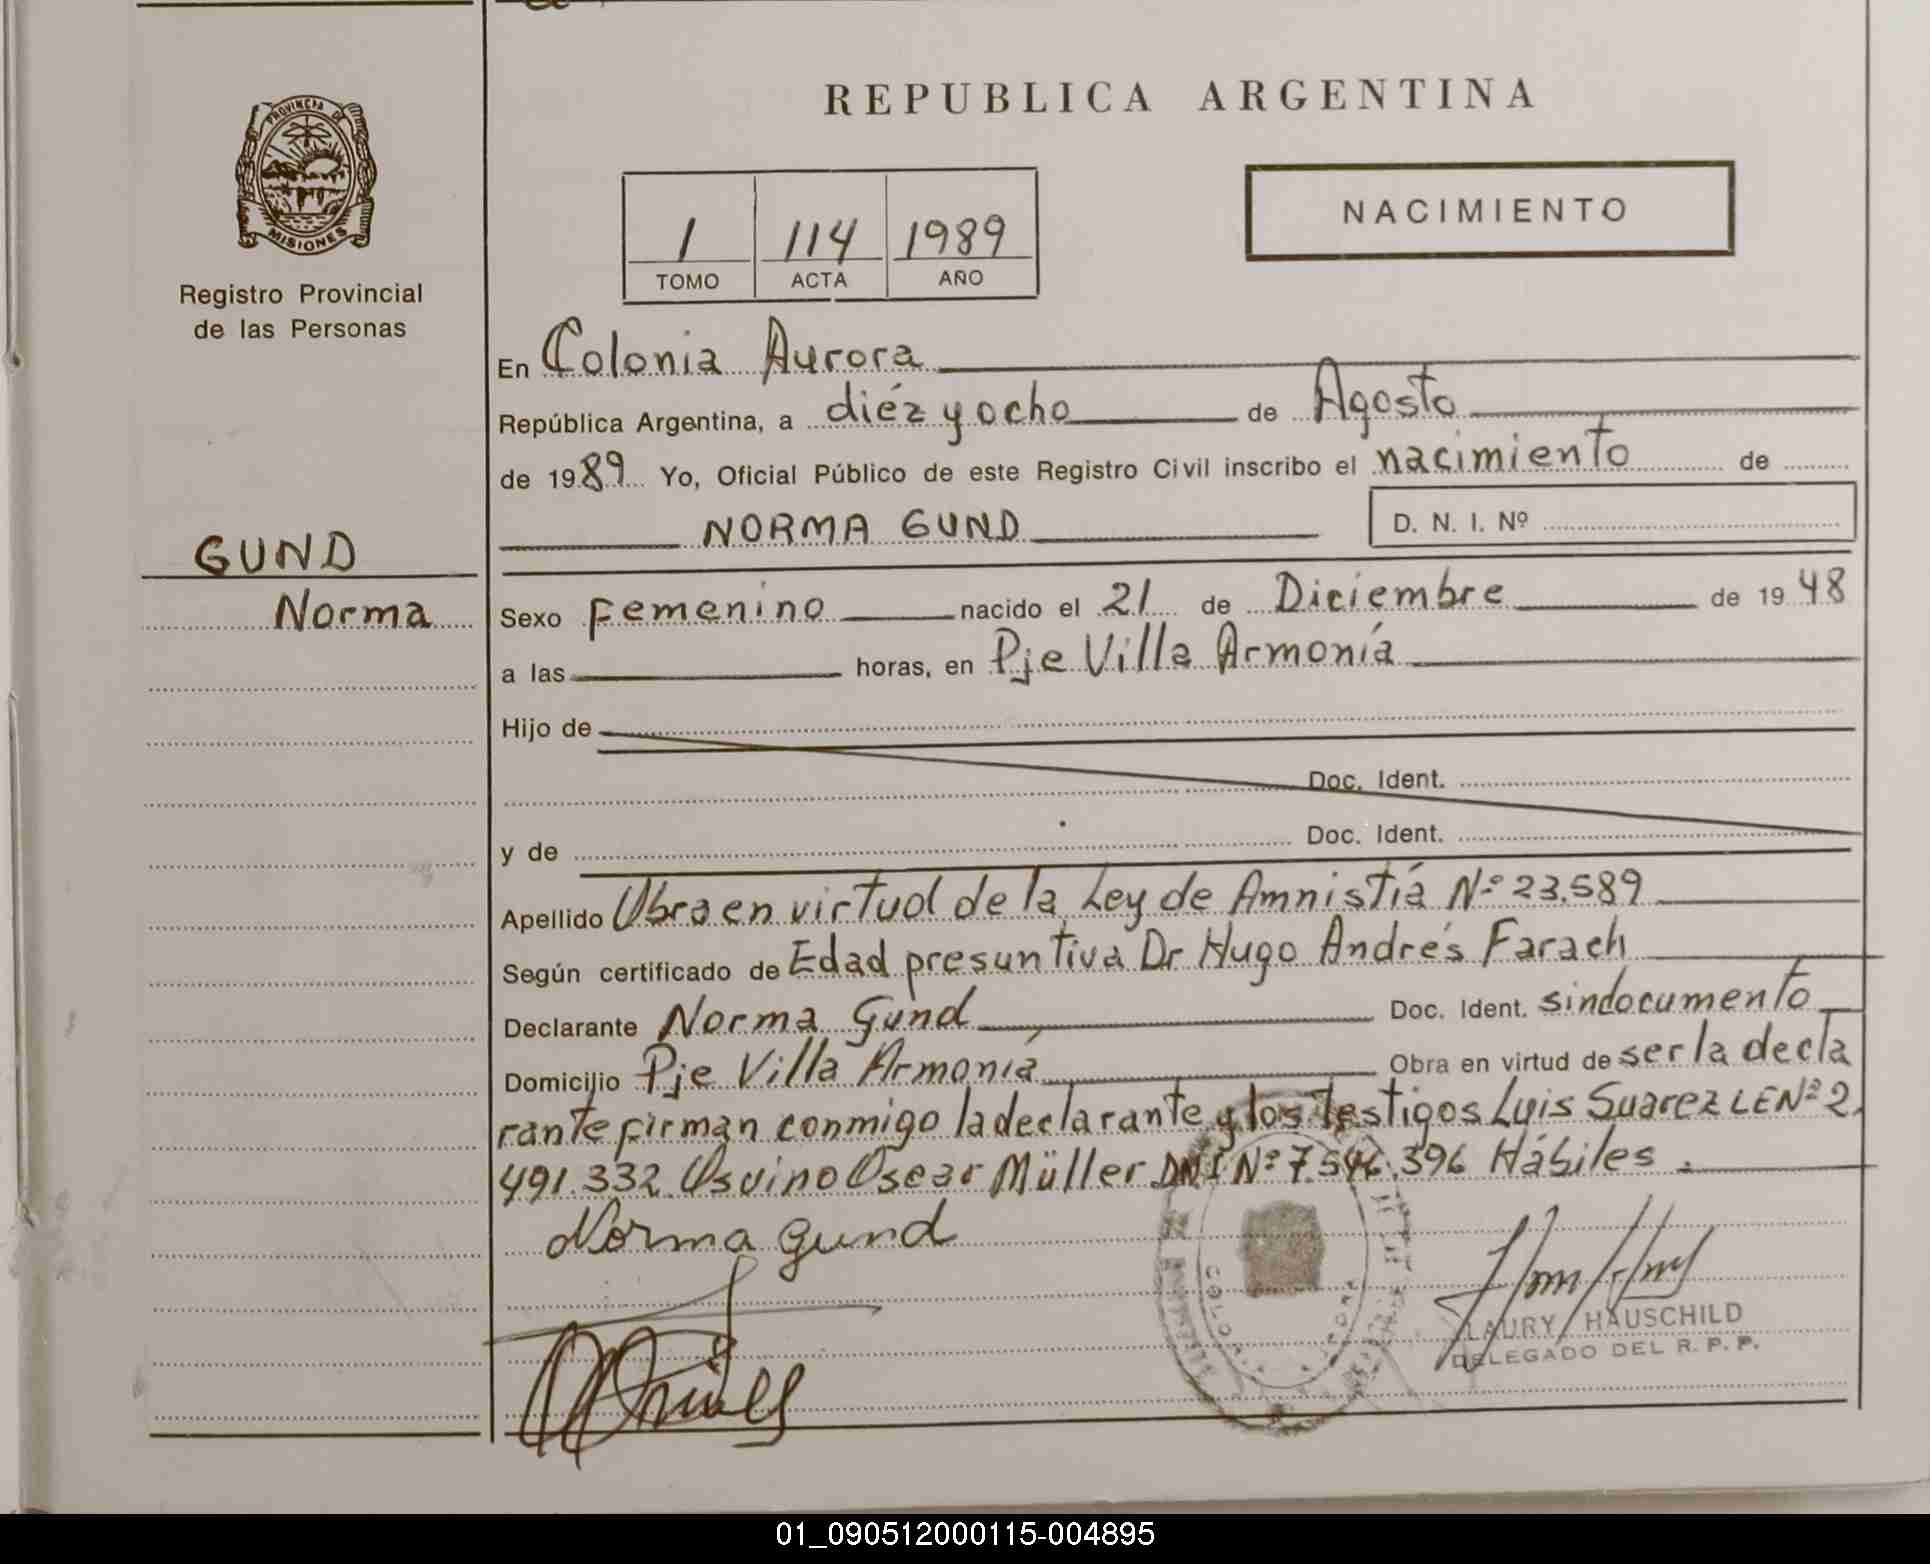 PROVINCIA DE
MISIONES
Registro Provincial
de las Personas
GUND
Norma
REPUBLICA ARGENTINA
1 114 1989
TOMO ACTA AÑO
NACIMIENTO
En Colonia Aurora
República Argentina, a diéz y ocho de Agosto
de 1989 Yo, Oficial Público de este Registro Civil inscribo el nacimiento de
NORMA GUND D. N. I. Nº
Sexo Femenino nacido el 21 de Diciembre de 1948
a las horas, en Pje Villa Armonía
Hijo de
Doc. Ident.
y de Doc. Ident.
Apellido Obra en virtud de la Ley de Amnistía Nº 23.589
Según certificado de Edad presuntiva Dr Hugo Andrés Farach
Declarante Norma Gund Doc. Ident. sin documento
Domicilio Pje Villa Armonía Obra en virtud de ser la decla
rante firman conmigo la declarante y los testigos Luis Suarez LE Nº 2.
491.332. Osvino Oscar Müller DNI Nº 7.546.396 Hábiles.
Norma Gund
LAURY HAUSCHILD
DELEGADO DEL R. P. P.
01_090512000115-004895